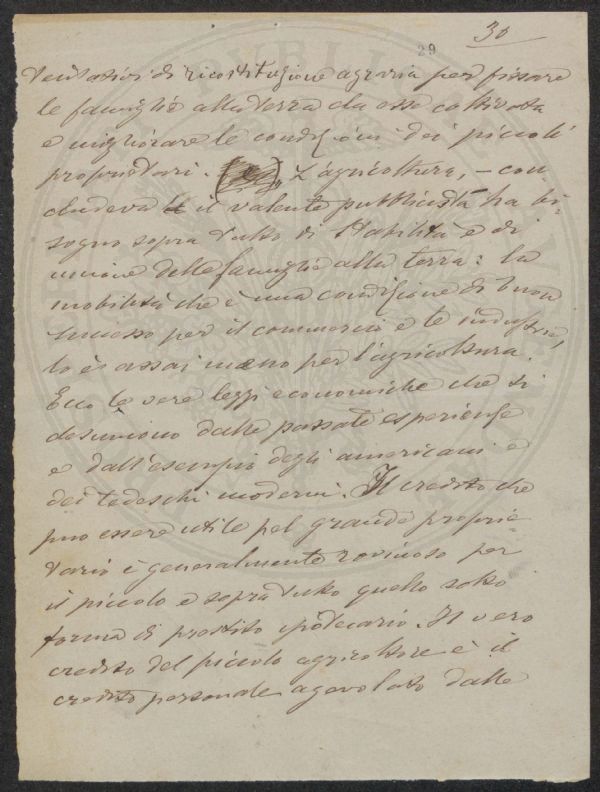 30
29
tentativi di ricostituzione agraria per fissare
le famiglie alla terra da esse coltivata
e migliorare le condizioni dei piccoli
proprietari. L'agricoltura, – con
cludeva il valente pubblicista ha bi-
sogno sopra tutto di stabilità e di
unione delle famiglie alla terra: la
mobilità che è una condizione di buon
successo per il commercio e le industrie,
lo è assai meno per l'agricoltura.
Ecco le vere leggi economiche che si
desumono dalle passate esperienze
e dall'esempio degli americani e
dei tedeschi moderni. Il credito che
può essere utile pel grande proprie-
tario è generalmente rovinoso per
il piccolo e sopra tutto quello sotto
forma di prestito ipotecario. Il vero
credito del piccolo agricoltore è il
credito personale agevolato dalle